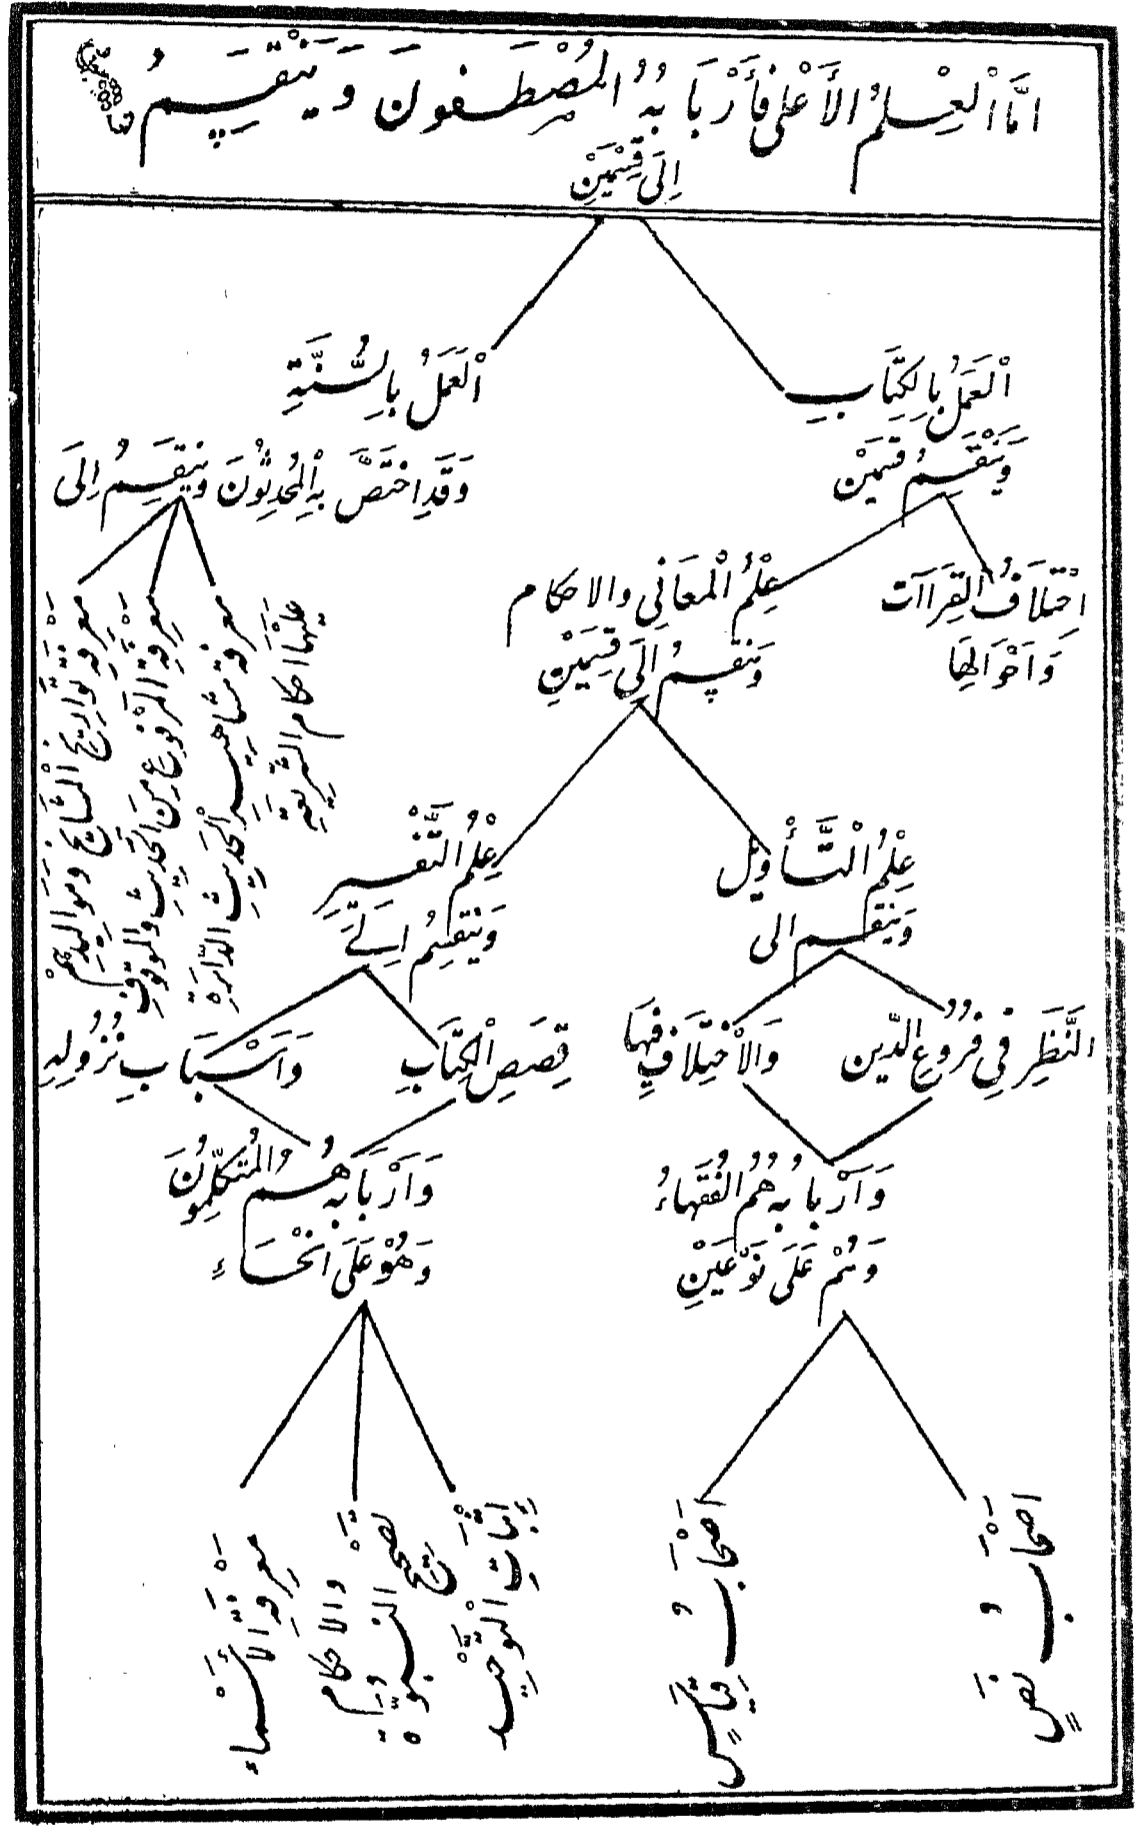 اَمَّا الْعِلْمُ الأَعْلىٰ فَأَرْبَابُهُ الْمُصْطَفُونَ وَيَنْقَسِمُ
اِلىٰ قِسْمَيْنِ
اَلْعَمَلُ بِالْكِتَابِ
وَيَنْقَسِمُ قِسْمَيْنِ
اَلْعَمَلُ بِالسُّنَّةِ
وَقَدِ اخْتَصَّ بِهِ الْمُحَدِثُونَ وَيَنْقَسِمُ اِلَى
اِخْتِلَافُ القِرَاآت
وَاَحْوَالِهَا
عِلْمُ الْمَعَانِي والاحكام
وَيَنْقَسِمُ اِلَى قِسْمَيْنِ
مَعْرِفَة مَشَاهِيرِ الْحَدِيثِ الدَّائِرَةِ
عَلَيْهَا اَحكام الشَّرِيعَةِ
مَعْرِفَةِ الْمَرْفُوعِ مِنَ الْحَدِيثِ وَالْمَوقُوفِ
مَعْرِفَةِ تَوَارِيخِ الْمَشَايخِ وَمَوَالِيدِهِمْ
عِلْمُ الْتَّأْوِيْل
وَيَنْقَسِم الى
عِلْمُ التَّفْسِيرِ
وَيَنْقَسِمُ اِلَىٰ
النَّظَرِ فِي فُرُوْعِ الدِّين
وَالاْخْتِلَافِ فِيْهَا
قِصَصِ الْكِتَابِ
وَاَسْبَابِ نُزُولِهِ
وَاَرْبَابُهُ هُمُ الْفُقَهاءُ
وَهُمْ عَلَى نَوْعَيْنِ
وَاَرْبَابُهُ هُمُ الْمُتَكَلِّمُونَ
وَهُوْ عَلَى اَنْحَاءٍ
اَصْحَابُ نَصٍّ
اَصْحَابُ قِيَاسٍ
إِثْبَاتِ الْتَّوْحِيْد
تَصْحِيْح النُّبُوَّة
وَالاحكام
مَعْرِفَةِ الْأَسْمَاء